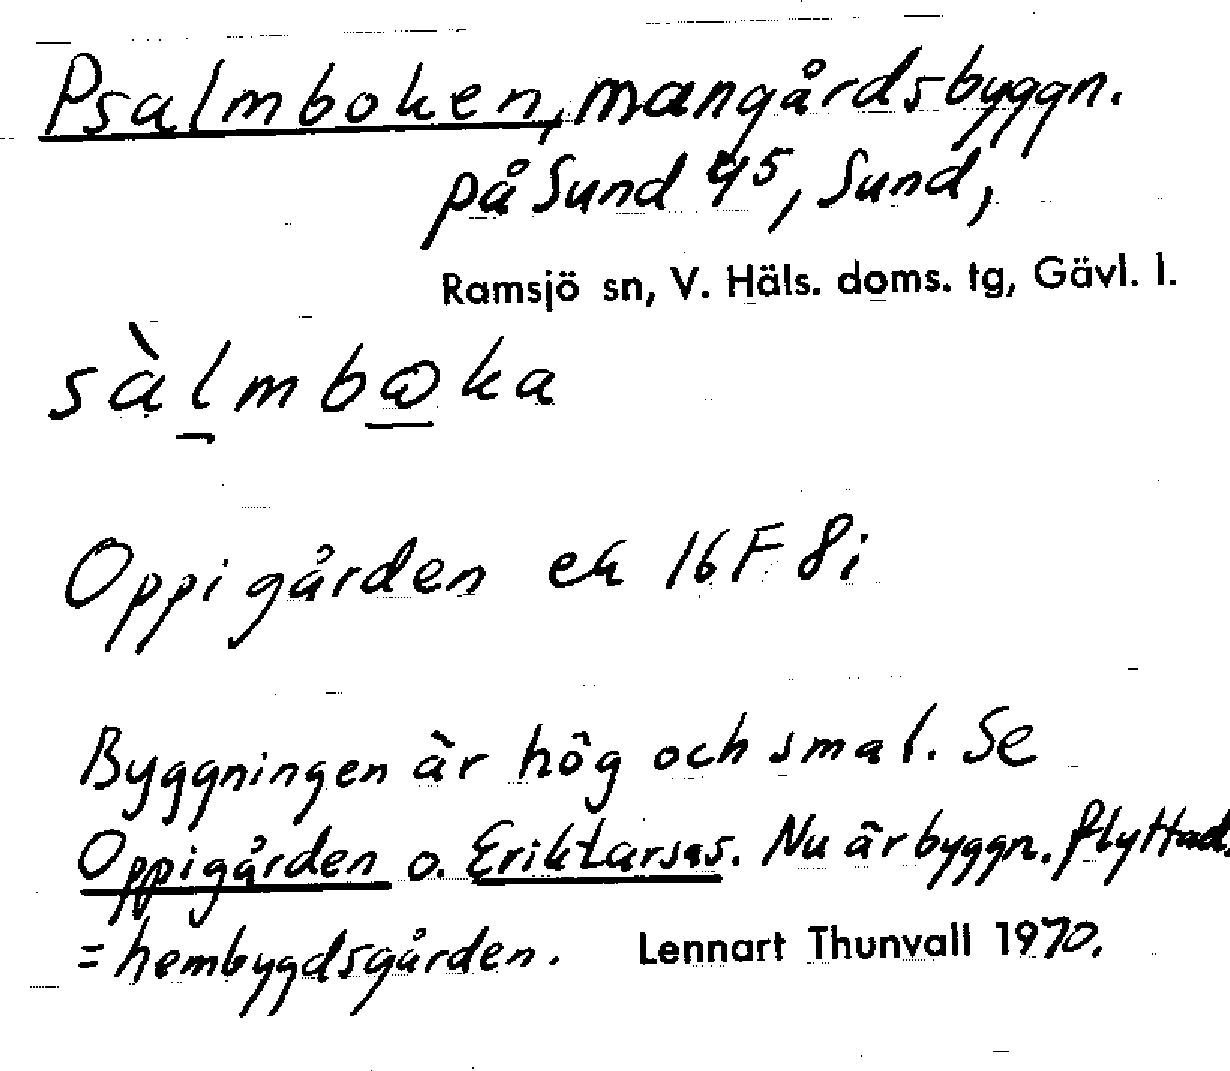 Psalmboken, mangårdsbyggn.
på Sund 45, Sund,
Ramsjö sn, V. Häls. doms. tg, Gävl. l.
Oppigården ek 16F 8i
Byggningen är hög och smal. Se
Oppigården o. Eriklarsas. Nu är byggn. flyttad.
= hembygdsgården. Lennart Thunvall 1970.